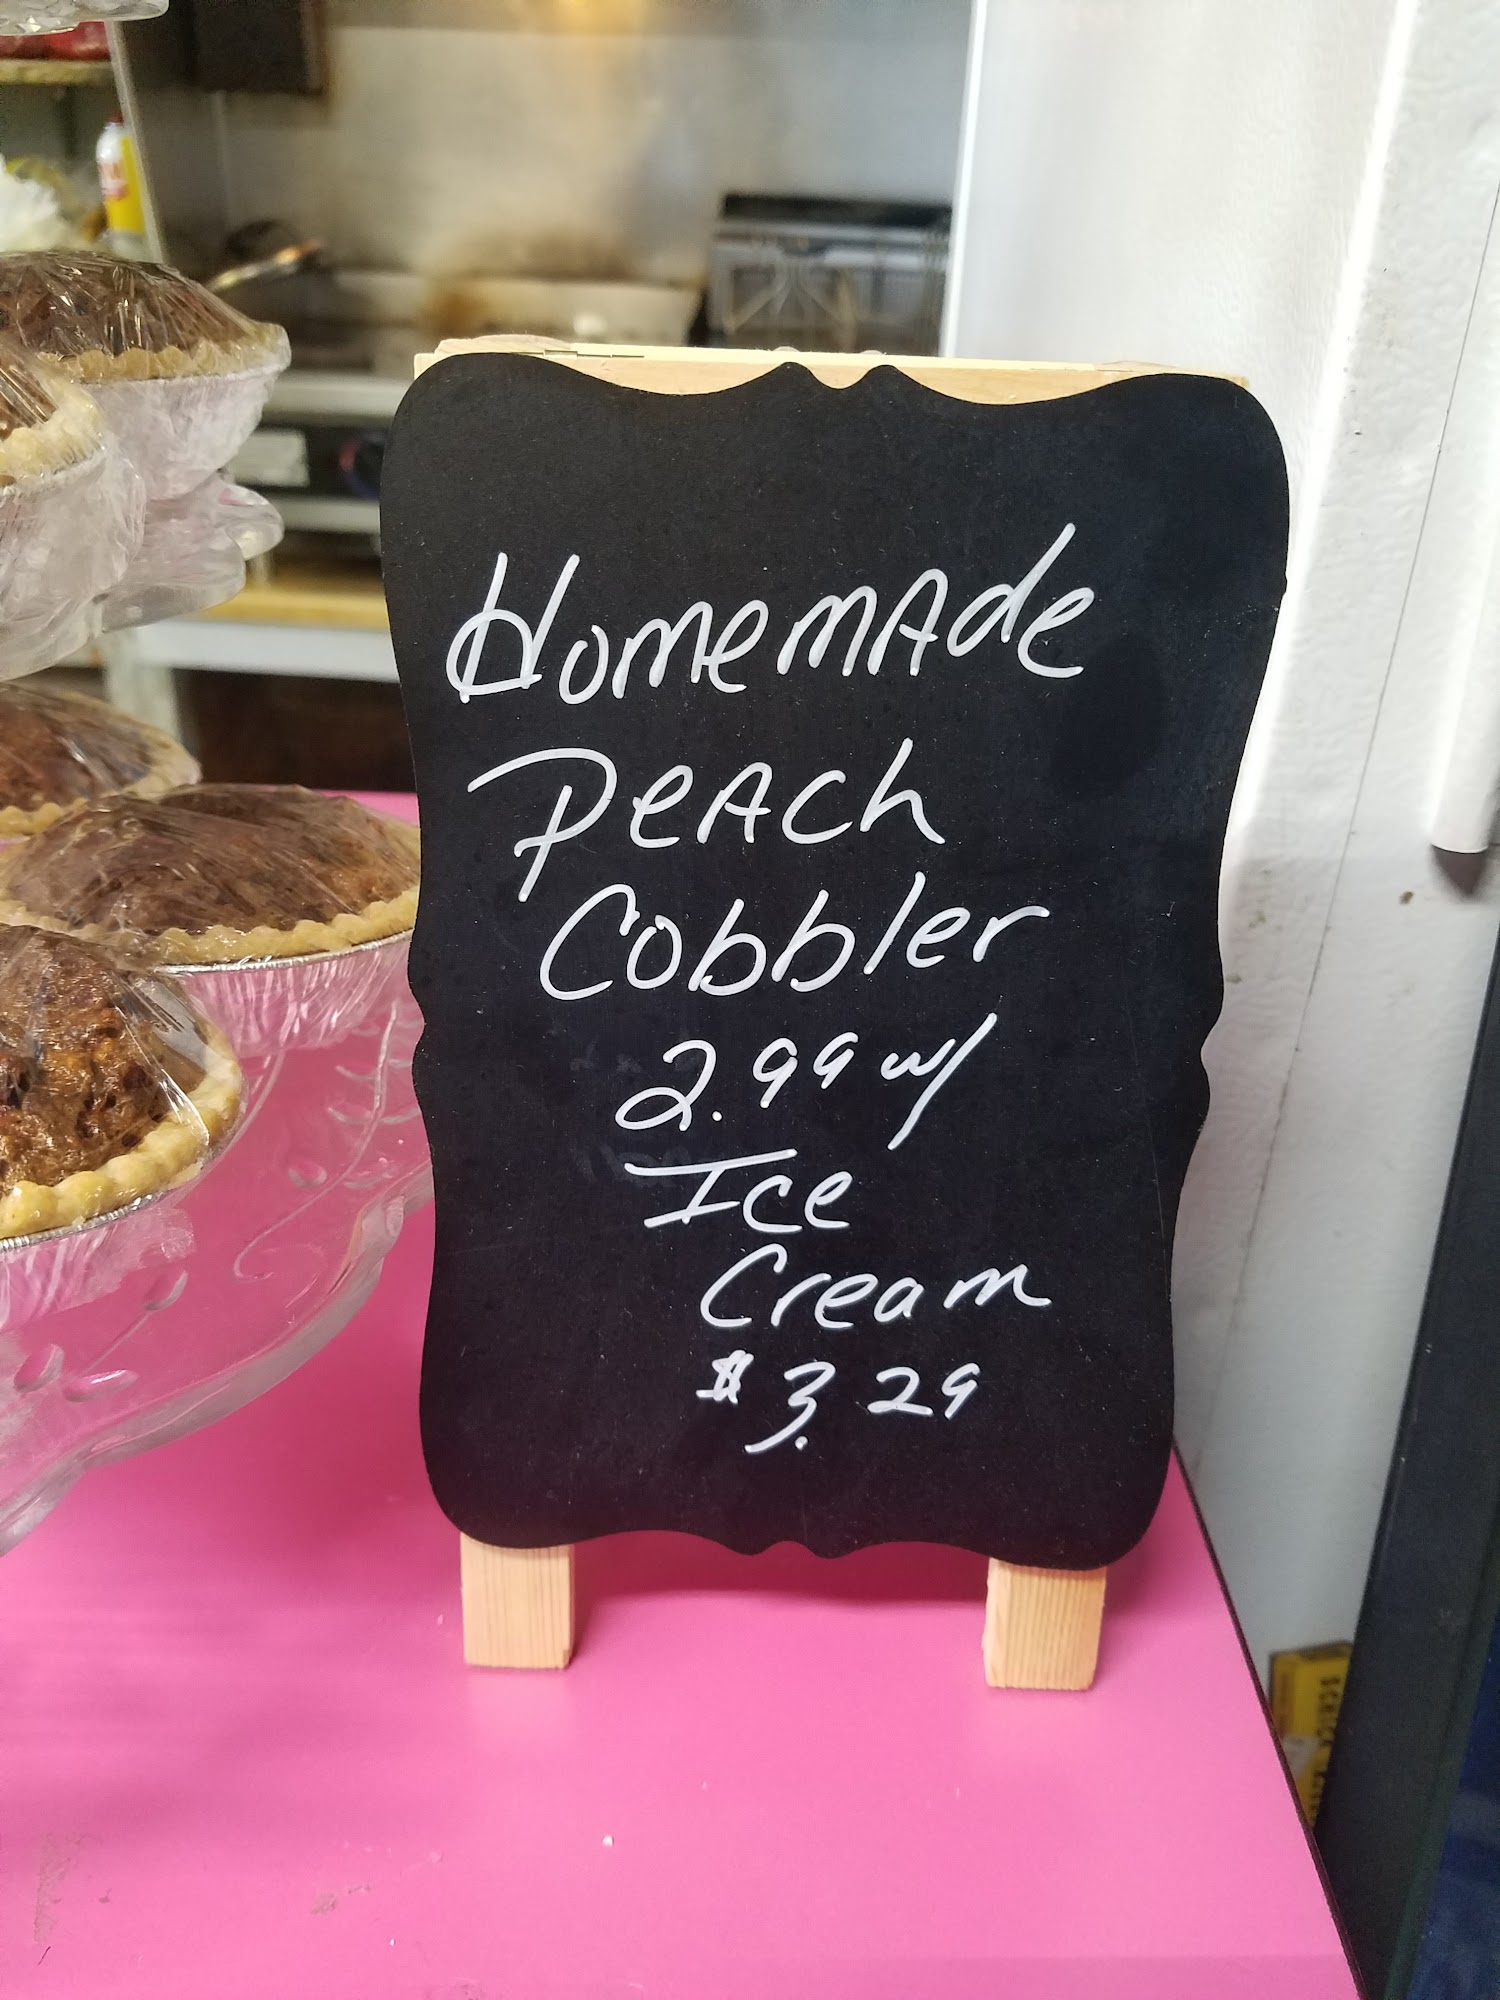 Homemade
Peach
Cobbler
2.99 w/
Ice
Cream
$3.29